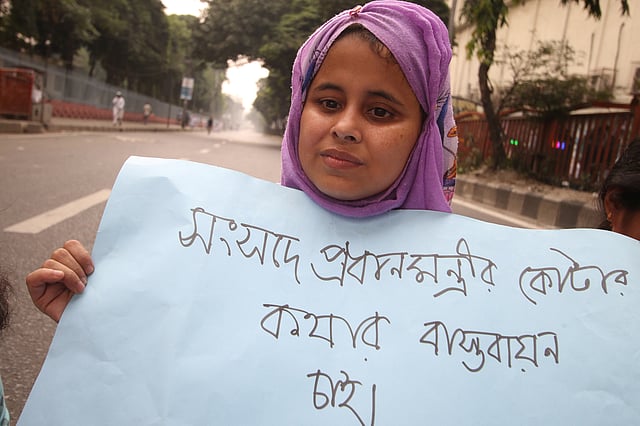 সংসদে প্রধানমন্ত্রীর কোটার
কথার বাস্তবায়ন
চাই।